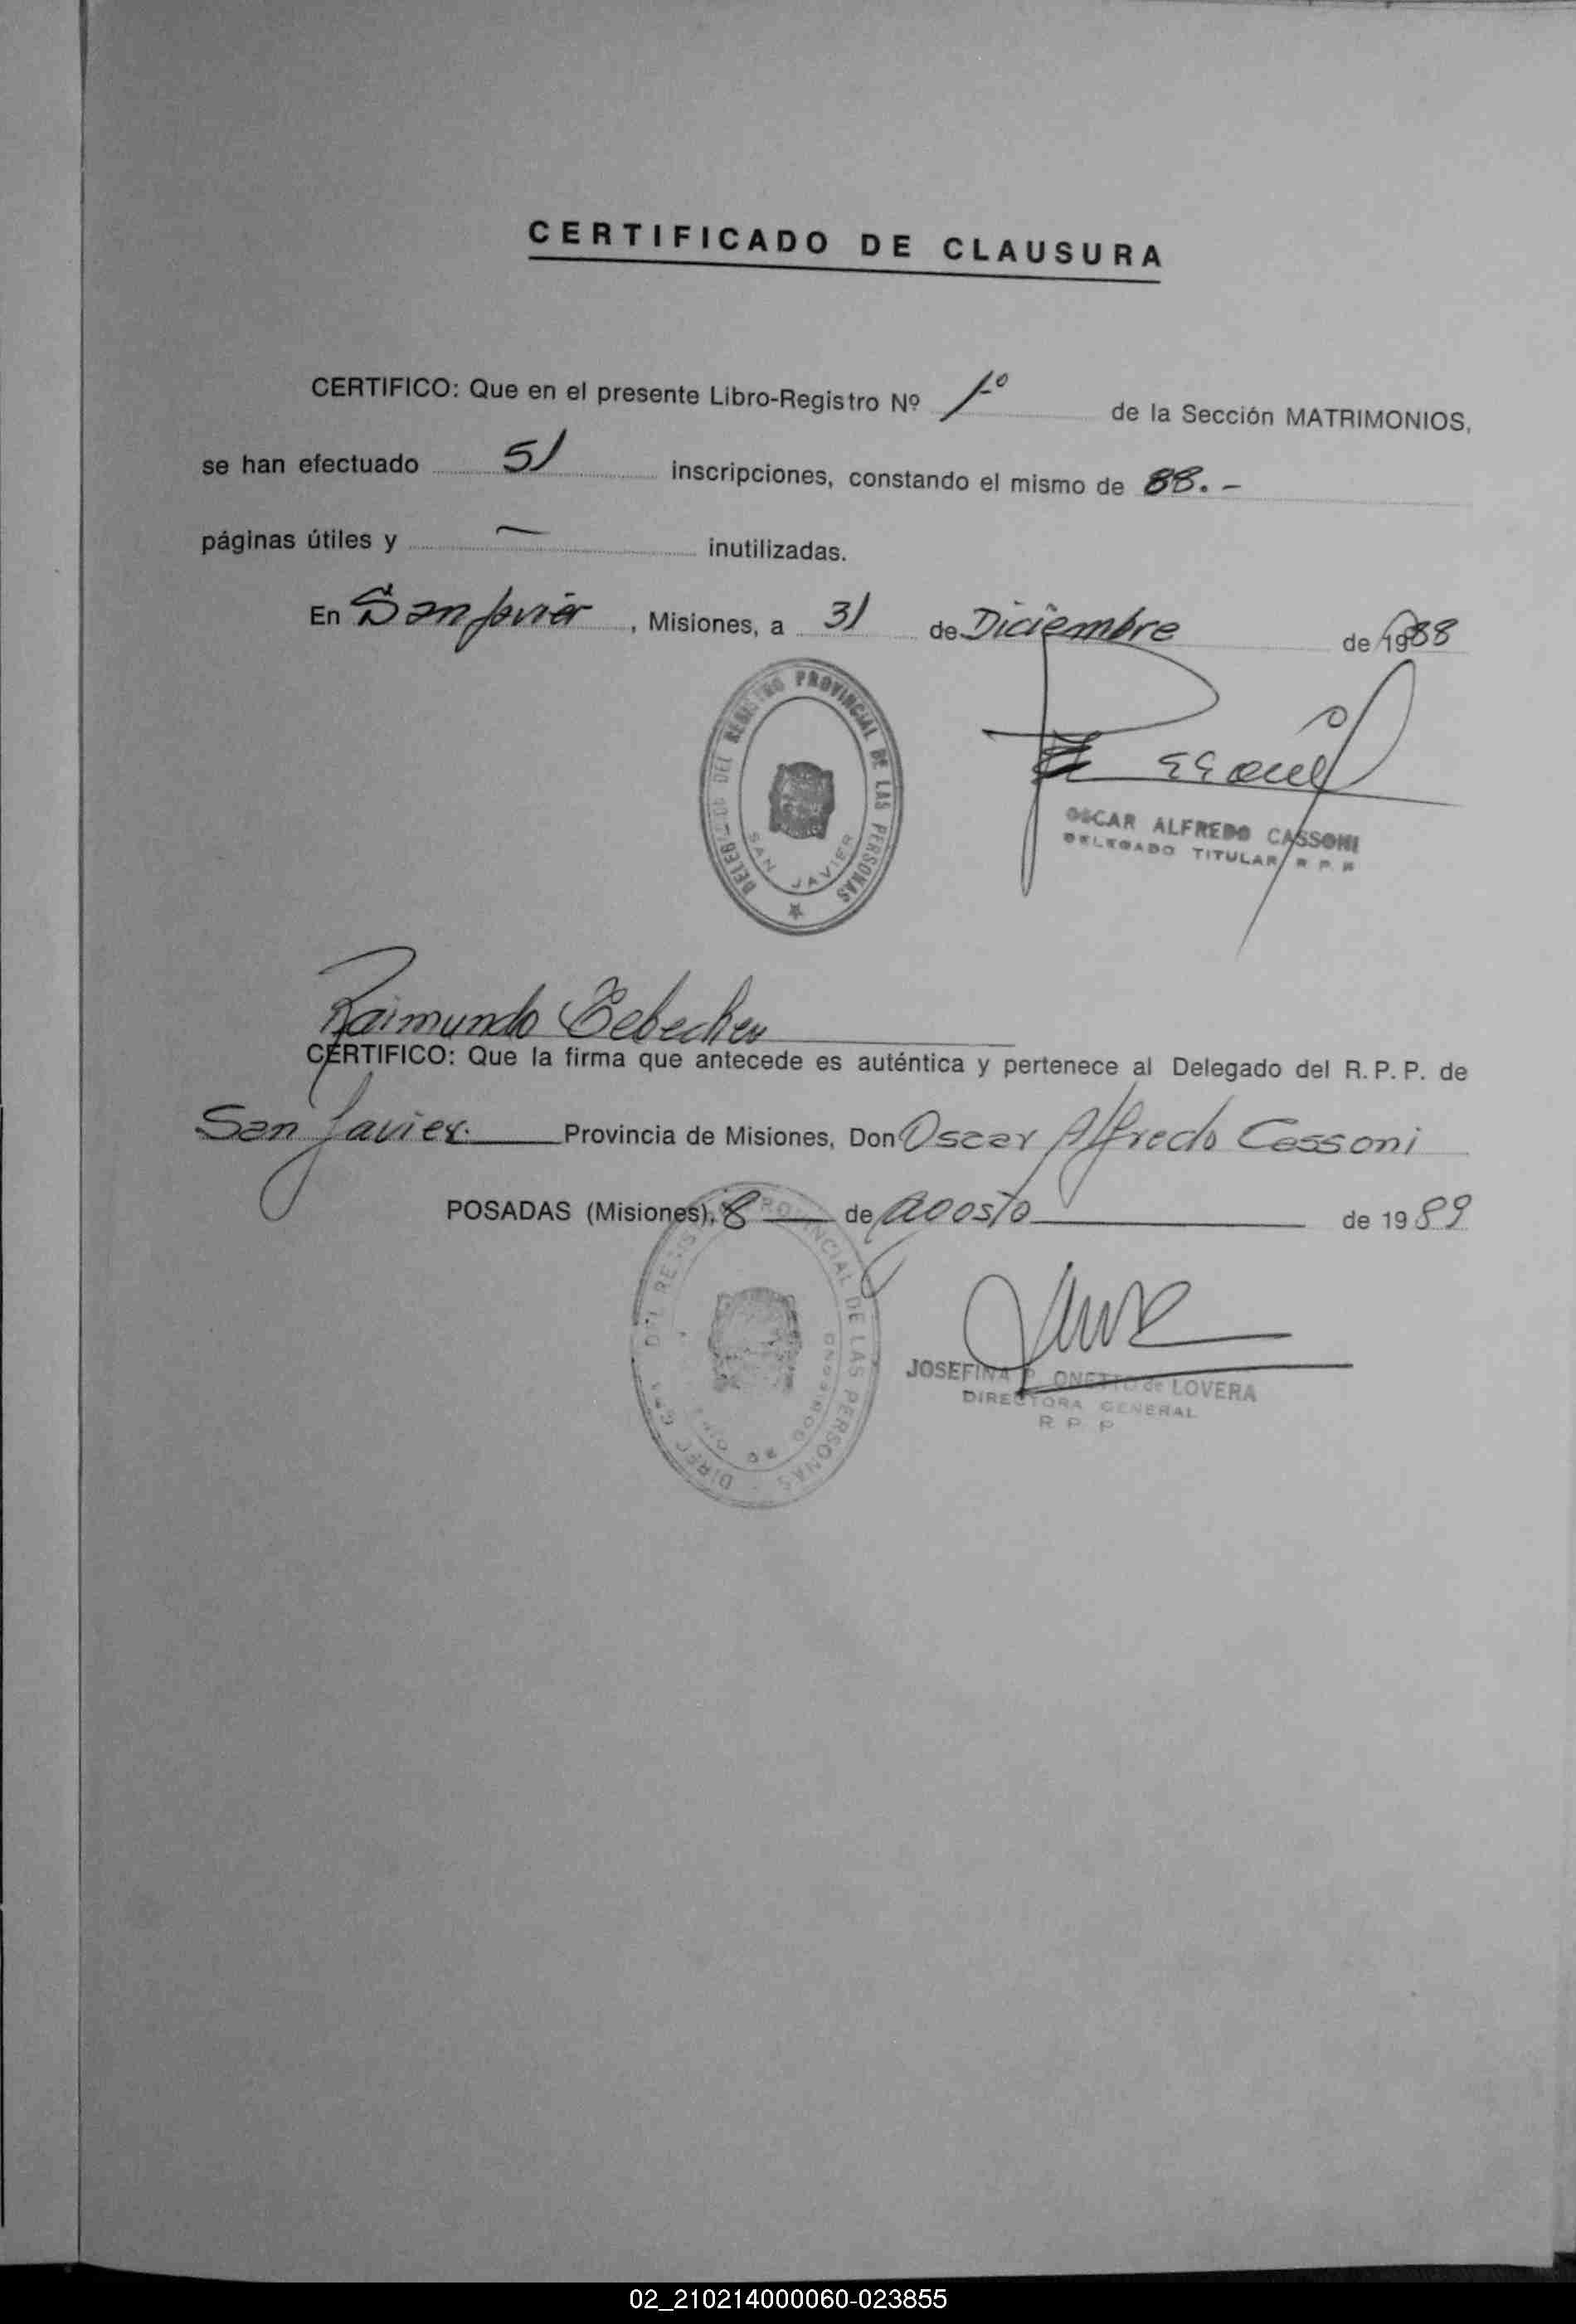 CERTIFICADO DE CLAUSURA
CERTIFICO: Que en el presente Libro-Registro Nº 1º de la Sección MATRIMONIOS,
se han efectuado 51 inscripciones, constando el mismo de 88. -
páginas útiles y — inutilizadas.
En San Javier, Misiones, a 31 de Diciembre de 1988
DEL REGISTRO PROVINCIAL DE LAS PERSONAS
SAN JAVIER
OSCAR ALFREDO CASSONI
DELEGADO TITULAR R P P
Raimundo
CERTIFICO: Que la firma que antecede es auténtica y pertenece al Delegado del R. P. P. de
San Javier. Provincia de Misiones, Don Oscar Alfredo Cassoni
POSADAS (Misiones), 8 de agosto de 1989
PROVINCIAL DE LAS PERSONAS
JOSEFINA P. ONETTO de LOVERA
DIRECTORA GENERAL
R P P
02_210214000060-023855